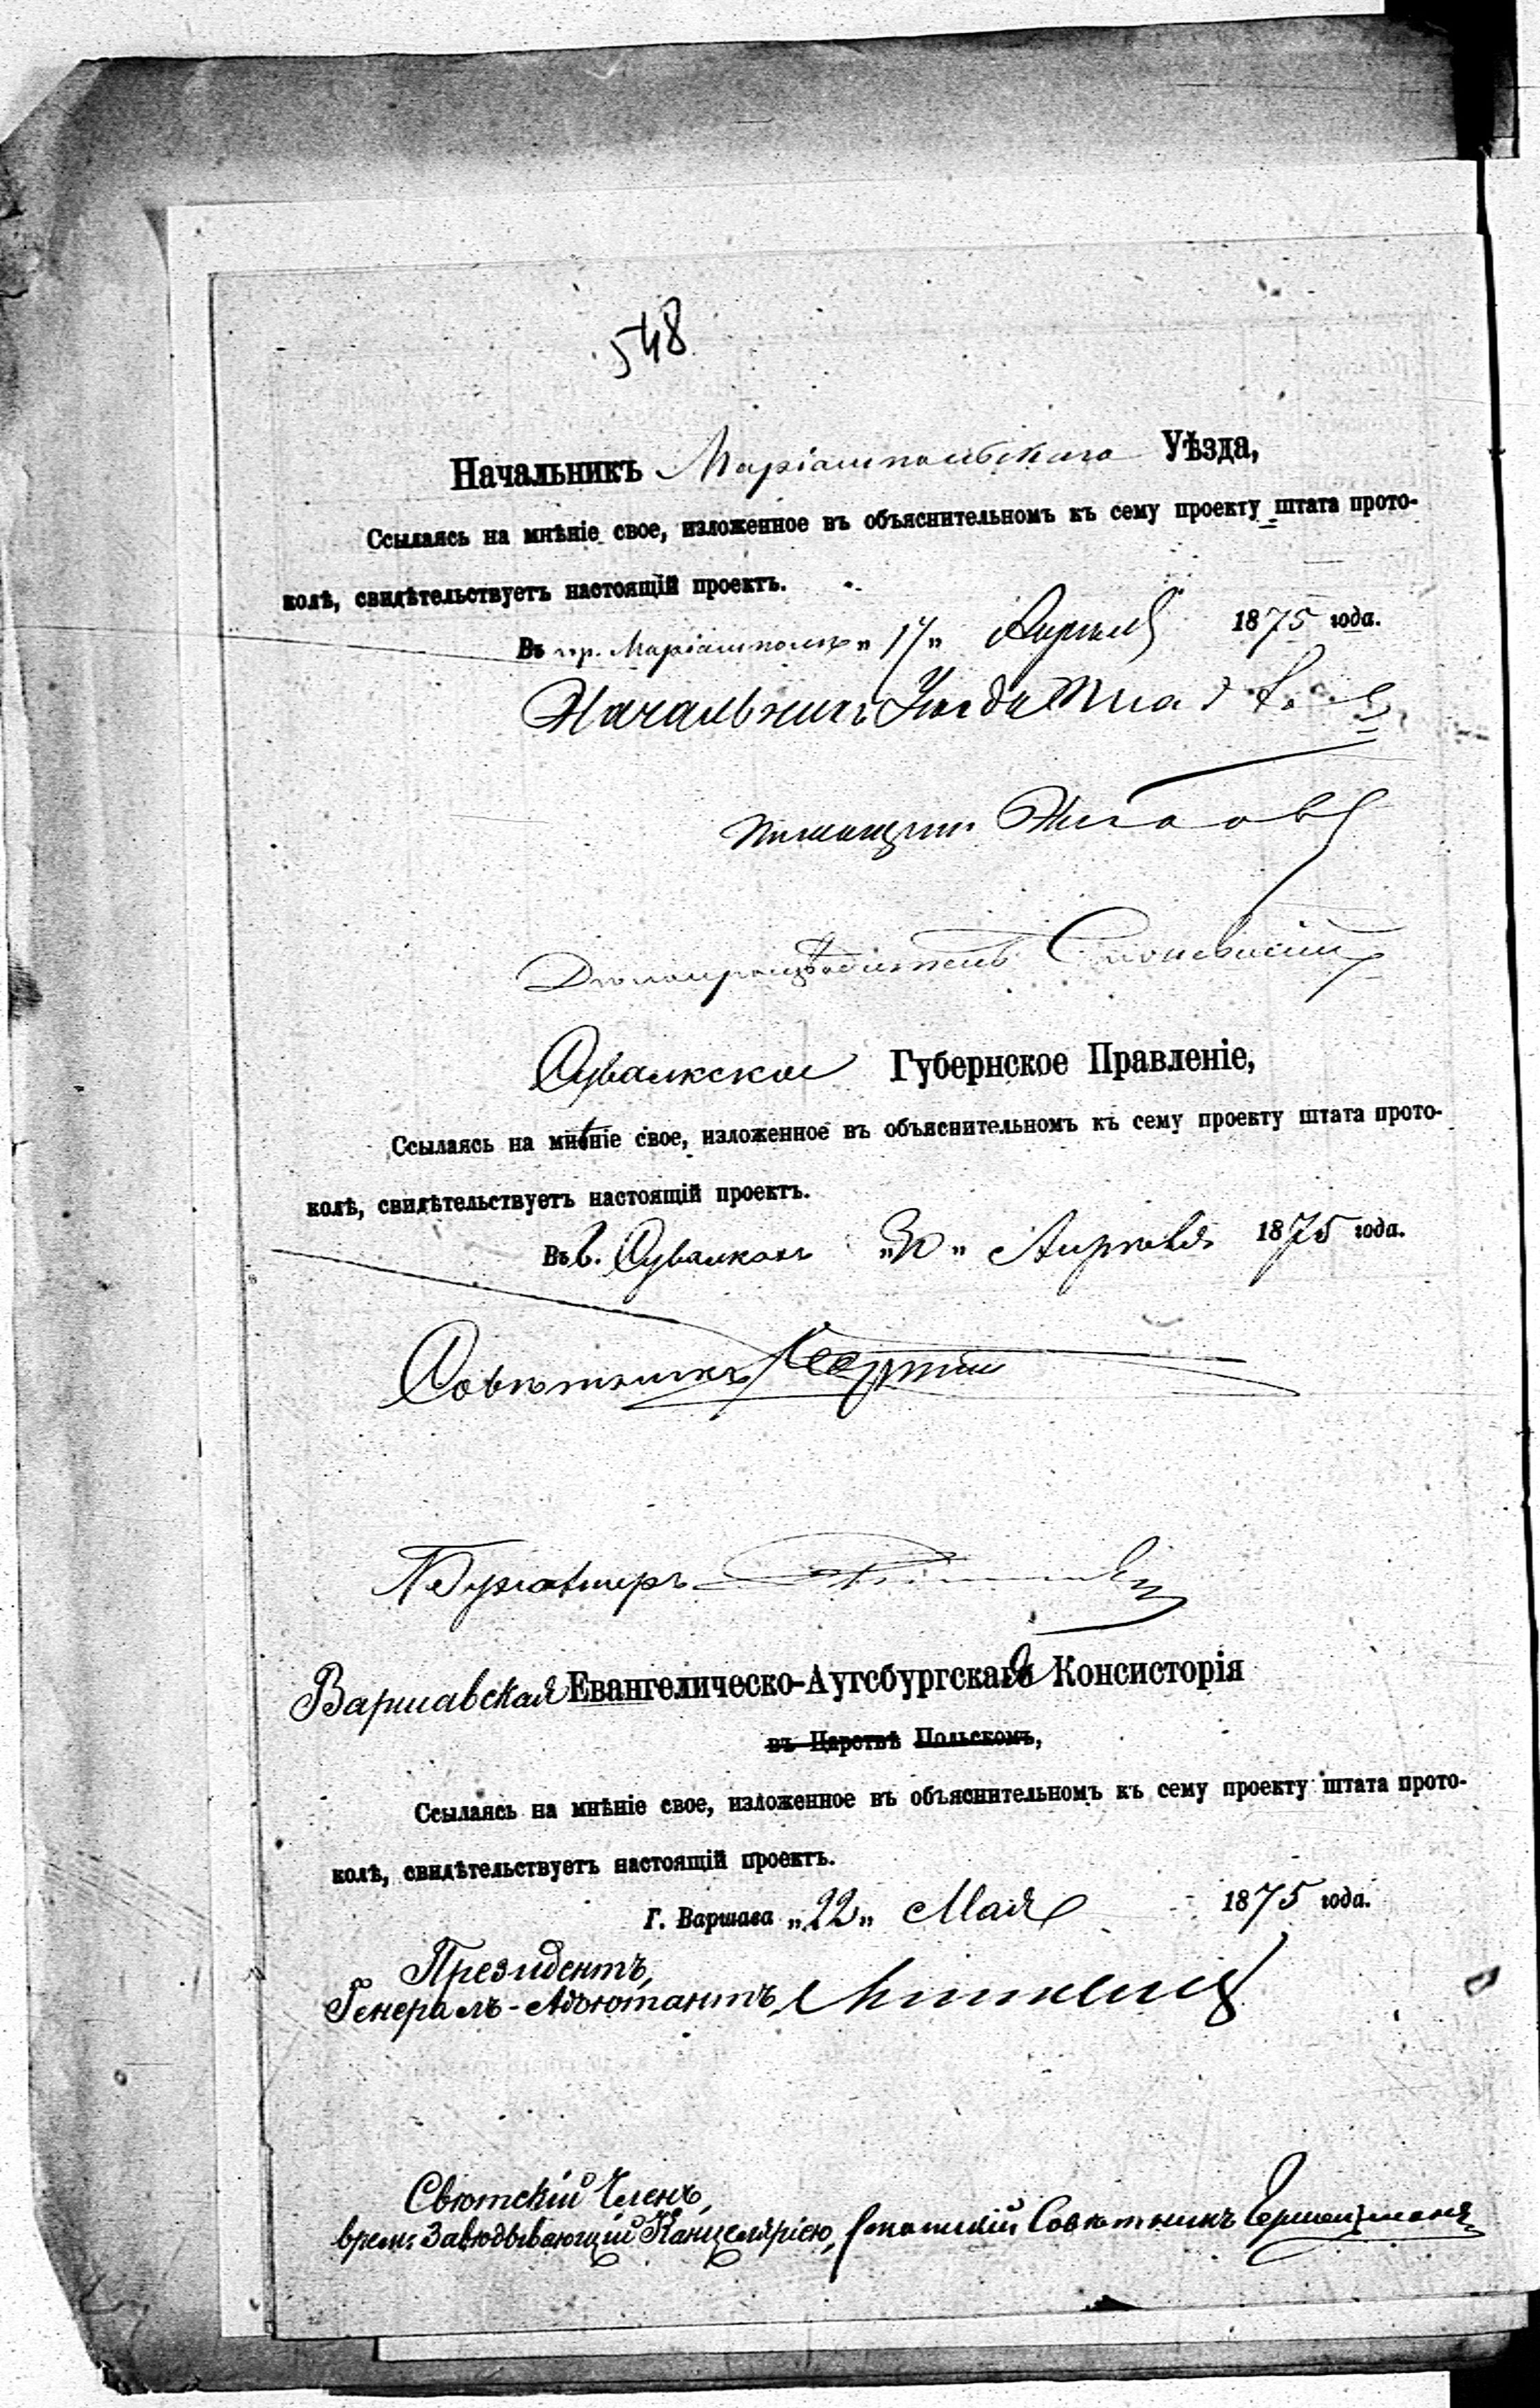 548
Начальникъ Маріампольскаго Уѣзда,
Ссылаясь на мнѣніе свое, изложенное въ объяснительномъ къ сему проекту штата прото-
колѣ, свидѣтельствуетъ настоящій проектъ.
Въ гор. Маріамполѣ „17„ Апрѣля 1875 года.
Начальникъ Уѣзда
Помощникъ
Дѣлопроизводитель
Сувалкское Губернское Правленіе,
Ссылаясь на мнѣніе свое, изложенное въ объяснительномъ къ сему проекту штата прото-
колѣ, свидѣтельствуетъ настоящій проектъ.
Въ г. Сувалкахъ „30„ Апрѣля 1875 года.
Совѣтникъ
Бухгалтеръ
Варшавская Евангелическо-Аугсбургская Консисторія
въ Царствѣ Польскомъ,
Ссылаясь на мнѣніе свое, изложенное въ объяснительномъ къ сему проекту штата прото-
колѣ, свидѣтельствуетъ настоящій проектъ.
Г. Варшава „22„ Мая 1875 года.
Президентъ,
Генералъ-Адъютантъ,
Свѣтскій Членъ,
врем: Завѣдывающій Канцеляріею, Статскій Совѣтникъ